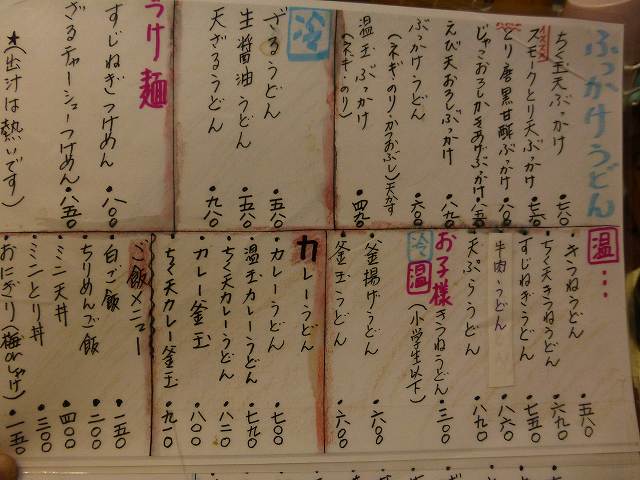 ぶっかけうどん
ちく玉天ぶっかけ ・七〇〇
スモークとり天ぶっかけ ・七五〇
とり唐黒甘酢ぶっかけ ・八〇〇
じゃこおろしかきあげぶっかけ ・八五〇
えび天おろしぶっかけ ・八九〇
ぶっかけうどん ・六〇〇
(ネギ・のり・かつおぶし)天かす
温玉ぶっかけ ・四九〇
(ネギ・のり)
冷
ざるうどん ・五八〇
生醤油うどん ・五八〇
天ざるうどん ・九八〇
つけ麺
すじねぎつけめん ・八〇〇
ざるチャーシューつけめん ・八五〇
★(出汁は熱いです)
温…
・きつねうどん ・五八〇
・ちく天きつねうどん ・六九〇
・すじねぎうどん ・七五〇
牛肉うどん ・八六〇
・天ぷらうどん ・八九〇
お子様きつねうどん ・三〇〇
冷 温 (小学生以下)
・釜揚げうどん ・六〇〇
・釜玉うどん ・六〇〇
カレーうどん
・カレーうどん ・七〇〇
・温玉カレーうどん ・七九〇
・ちく天カレーうどん ・八二〇
・カレー釜玉 ・八〇〇
・ちく天カレー釜玉 ・九二〇
ご飯メニュー
・白ご飯 ・一五〇
・ちりめんご飯 ・二〇〇
・ミニ天丼 ・四〇〇
・ミニとり丼 ・三〇〇
・おにぎり(梅orしゃけ) ・一五〇